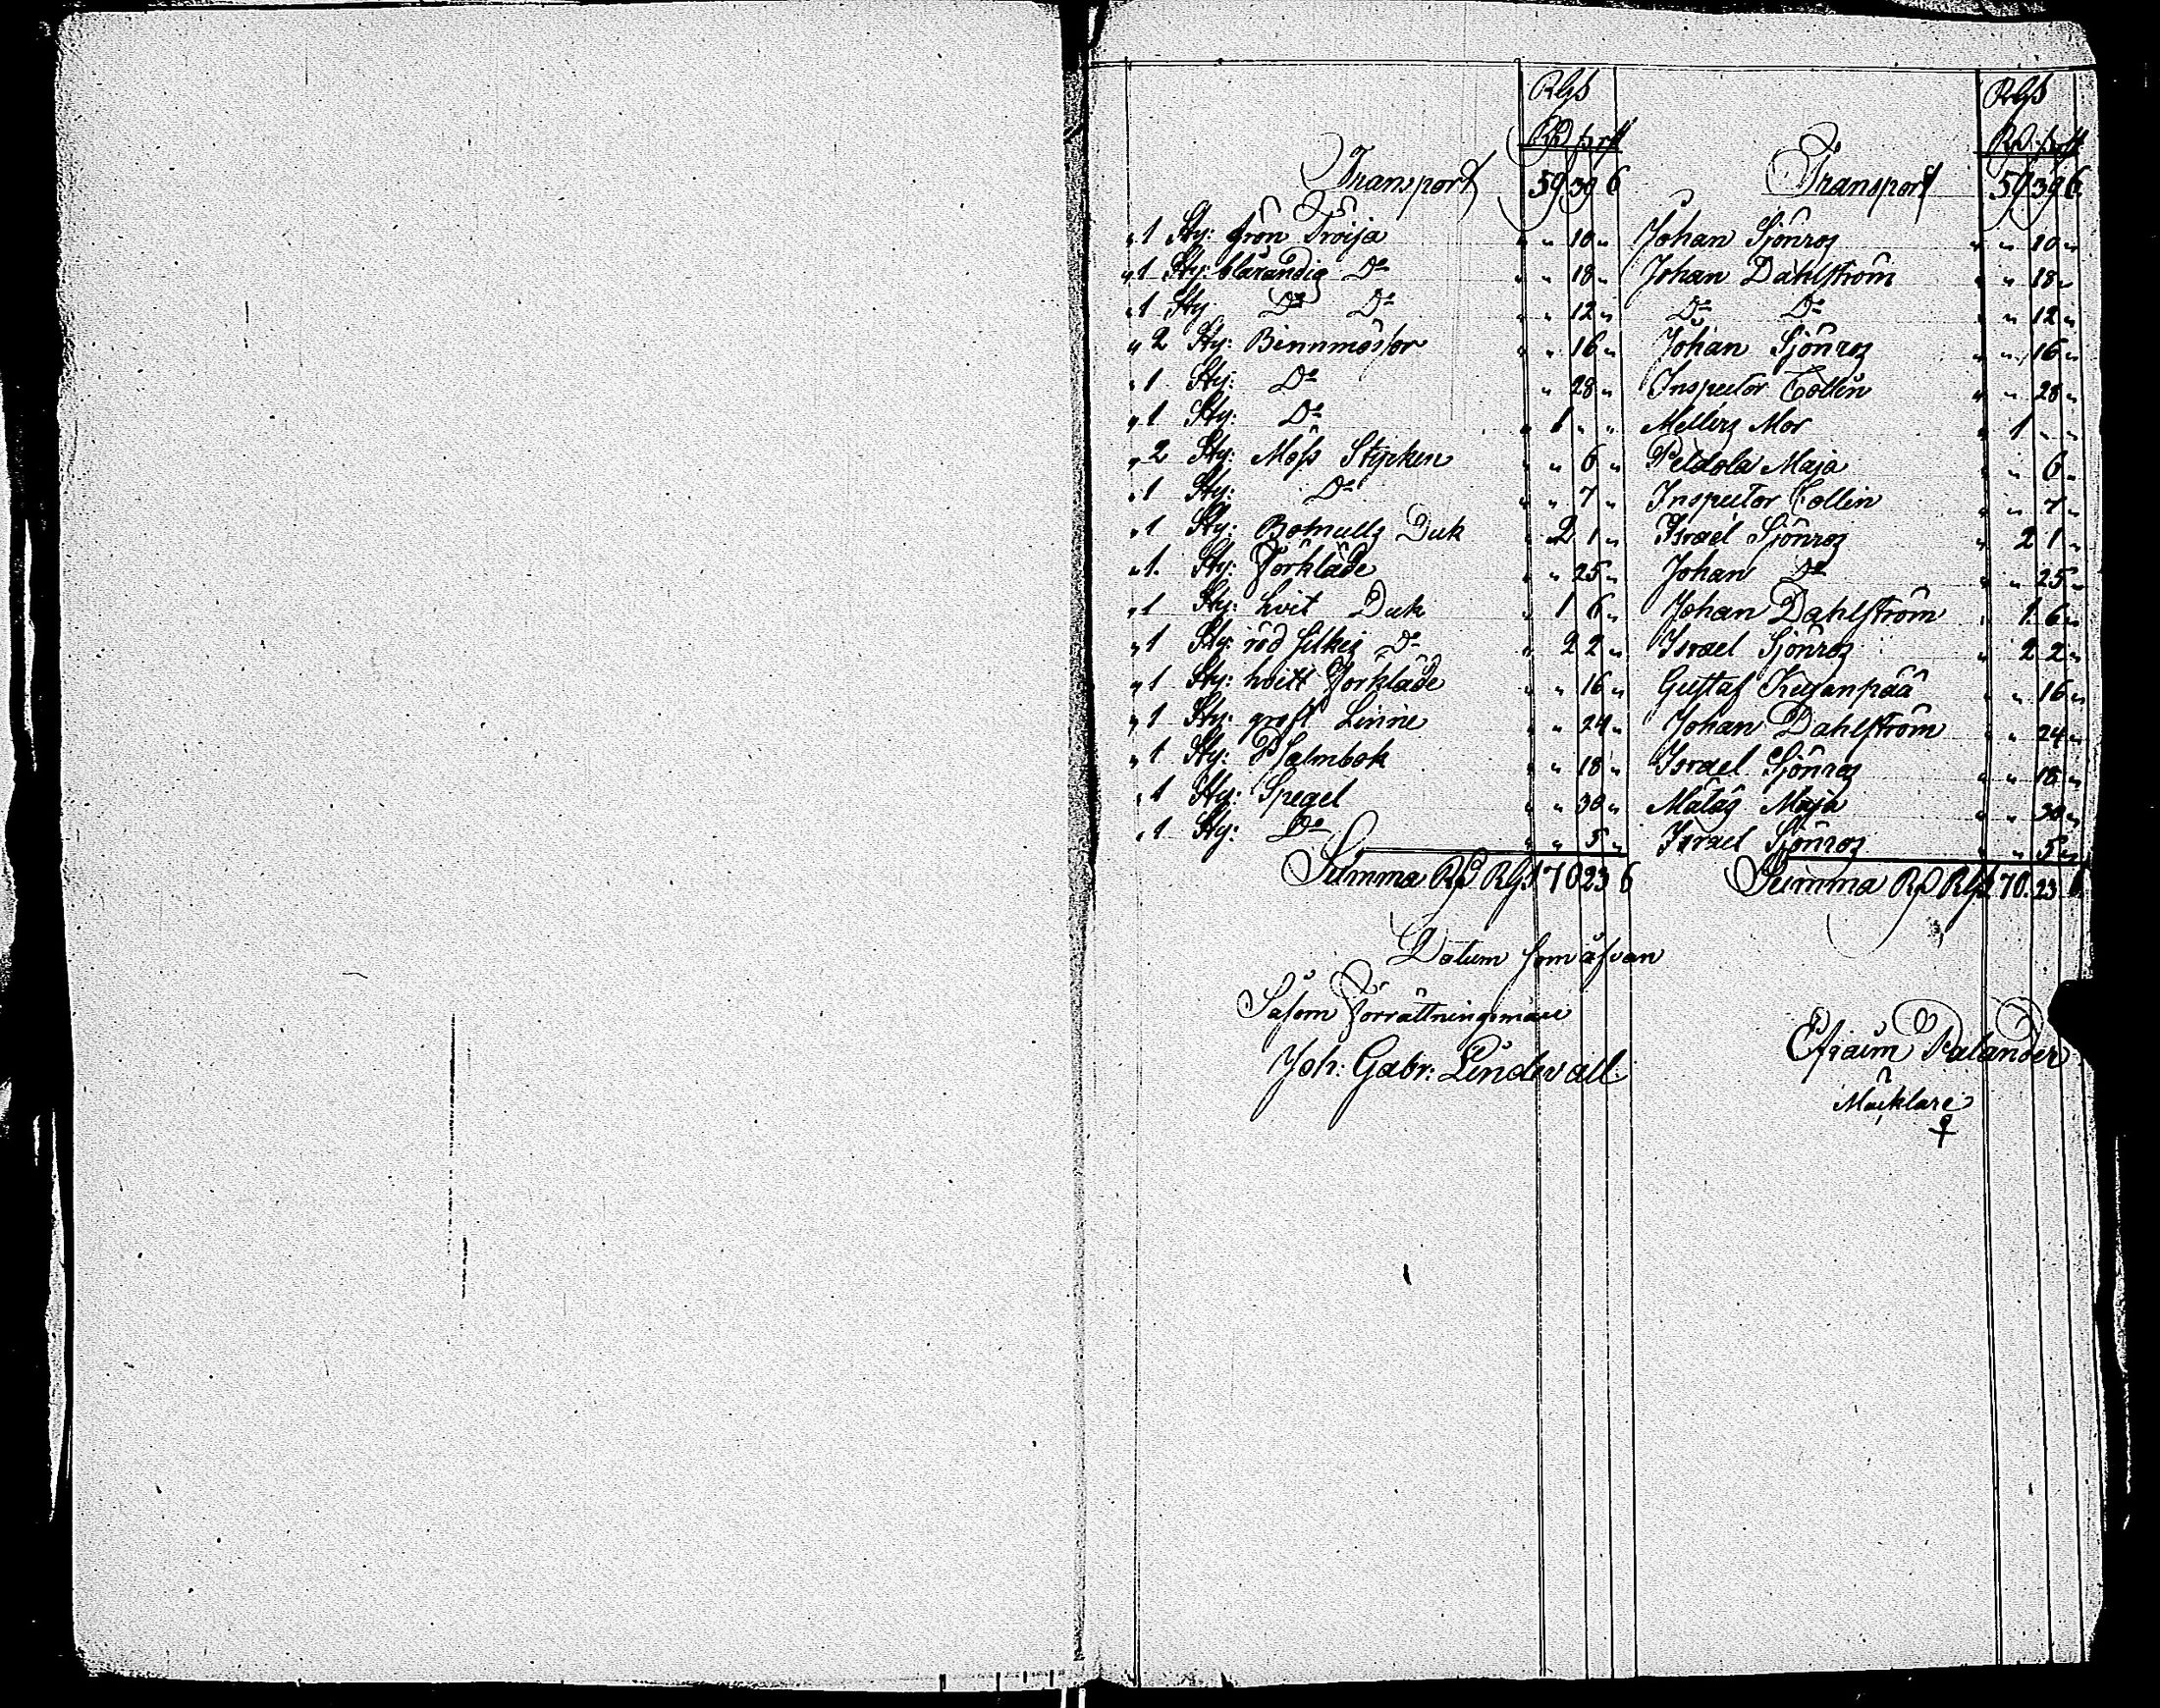 RGs RGs
RD s rst RD s rst
Transport 59 39 6 Transport 59 39 6
" 1 Sty: grön Tröija " " 10 " Johan Sjönroz " " 10 "
" 1 Sty: blårandig Do " " 18 " Johan Dahlström " " 18 "
" 1 Sty Do Do " " 12 " Do Do " " 12 "
" 2 Sty: Binnmössor " " 16 " Johan Sjönroz " " 16 "
" 1 Sty: Do " 28 " Inspector Collin " " 28 "
" 1 Sty: Do " 1 " " Mellers Mor " 1 " "
" 2 Sty: Möss Stycken " " 6 " Peldola Maja " " 6 "
" 1 Sty: Do " " 7 " Inspector Collin " " 7 "
" 1 Sty: Bomulls Duk " 2 1 " Israel Sjönroz " 2 1 "
" 1. Sty: Förkläde " " 25 " Johan Do " " 25 "
" 1 Sty: hvit Duk " 1 6 " Johan Dahlström " 1 6 "
" 1 Sty: röd silkes Do " 2 2 " Israel Sjönroz " 2 2 "
" 1 Sty: hvitt Förkläde " " 16 " Gustaf Kusanpää " " 16 "
" 1 Sty: groft Linne " " 24 " Johan Dahlström " " 24 "
" 1 Sty: Psalmbok " " 18 " Israel Sjönroz " " 18 "
" 1 Sty: Spegel " " 30 " Mälas Maja " " 30 "
" 1 Sty: Do " " 5 " Israel Sjönroz " " 5 "
Summa RD RGs 70 23 6 Summa RD RGs 70. 23 6
Datum som åfvan
Såsom Förrättningsman
Joh: Gabr: Lindevall. Efraim Palander
Mäcklare